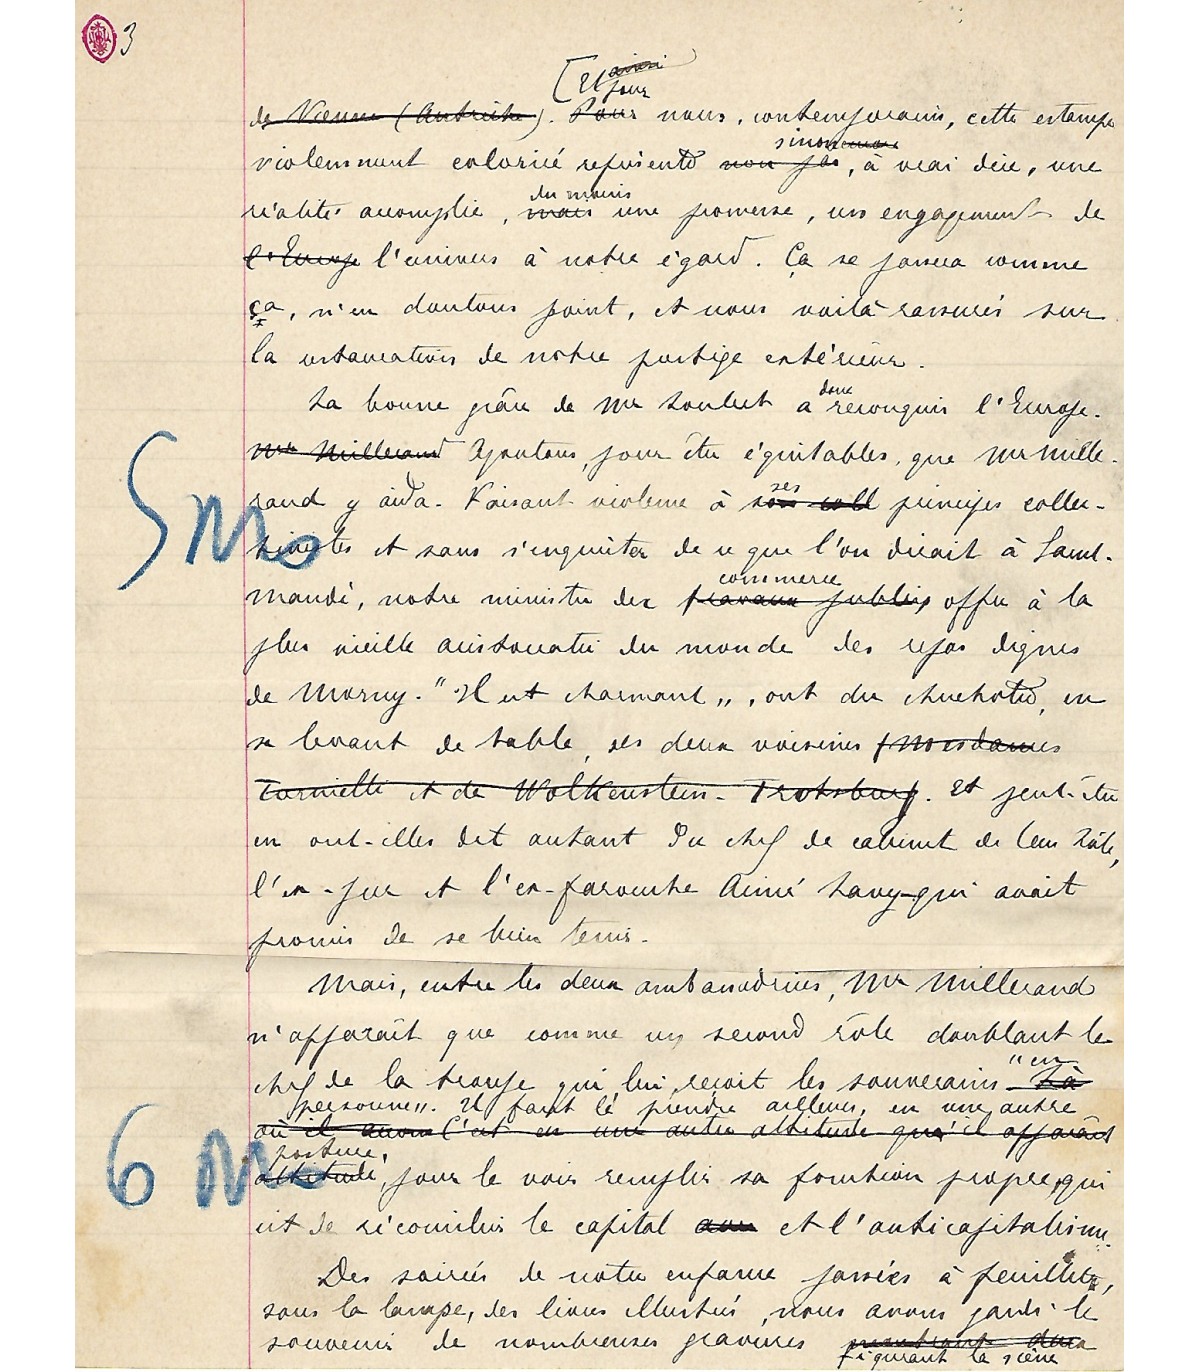 3
[Et ~~ainsi~~
pour
~~de Vienne (Autriche)~~. ~~Pour~~ nous, contemporains, cette estampe
sinon ~~encore~~
violemment coloriée représente ~~non pas~~, à vrai dire, une
du moins
réalité accomplie, ~~mais~~ une promesse, un engagement de
~~l'Europe~~ l'univers à notre égard. Ça se passera comme
ça, n'en doutons point, et nous voilà rassurés sur
la restauration de notre prestige extérieur.
donc
La bonne grâce de Mr Loubet a reconquis l'Europe.
~~Mr Millerand~~ Ajoutons, pour être équitables, que Mr Mille-
ses
rand y aida. Faisant violence à ~~son coll~~ principes collec-
5
tivistes et sans s'enquérir de ce que l'on dirait à Saint-
commerce
Mandé, notre ministre du ~~travaux publics~~ offre à la
plus vieille aristocratie du monde des repas dignes
de Morny. "Il est charmant", ont du chuchoter, en
se levant de table, ses deux voisines ~~Mesdames~~
~~Tornielli et de Wolkenstein-Trotsburg~~. Et peut-être
en ont-elles dit autant du chef de cabinet de leur hôte,
l'ex-pur et l'ex-farouche Aimé Lavy qui avait
promis de se bien tenir.
Mais, entre les deux ambassadrices, Mr Millerand
n'apparaît que comme un second rôle doublant le
"en
chef de la troupe qui lui, reçoit les souverains ~~là~~
personne". Il faut le prendre ailleurs, en une autre
~~où il~~ ~~C'est en une autre attitude qu'il apparaît~~
posture,
6
~~attitude~~, pour le voir remplir sa fonction propre, qui
est de réconcilier le capital et l'anticapitalisme.
Des soirées de notre enfance passées à feuilleter,
sous la lampe, des livres illustrés, nous avons gardé le
souvenir de nombreuses gravures
figurant la scène